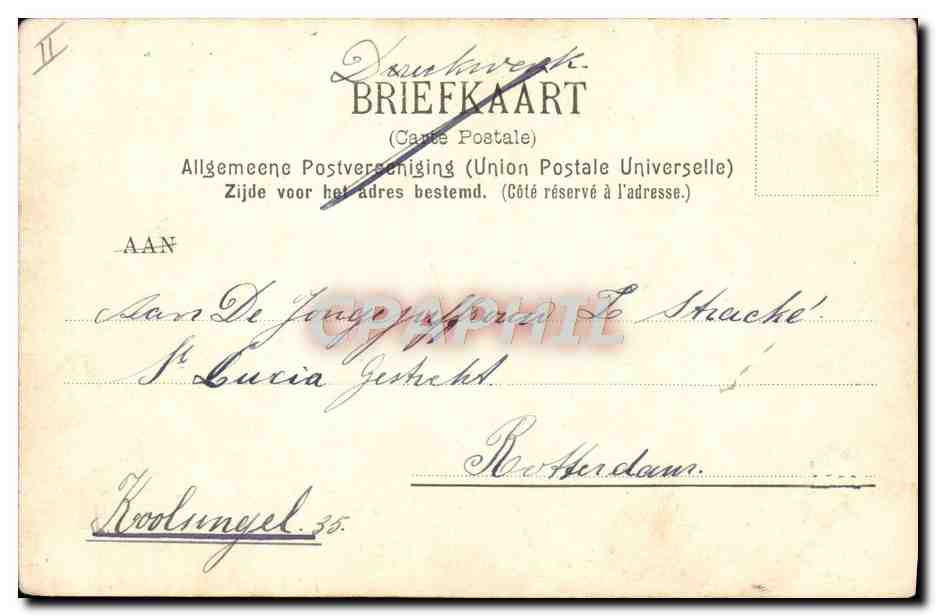 II
Druckwerk.
BRIEFKAART
(Carte Postale)
Allgemeene Postvereeniging (Union Postale Universelle)
Zijde voor het adres bestemd. (Côté réservé à l'adresse.)
AAN
Aan De Jonge juffrouw L Stracké.
St Lucia Gesticht.
Rotterdam.
Koolsingel. 35.
CPAPHIL